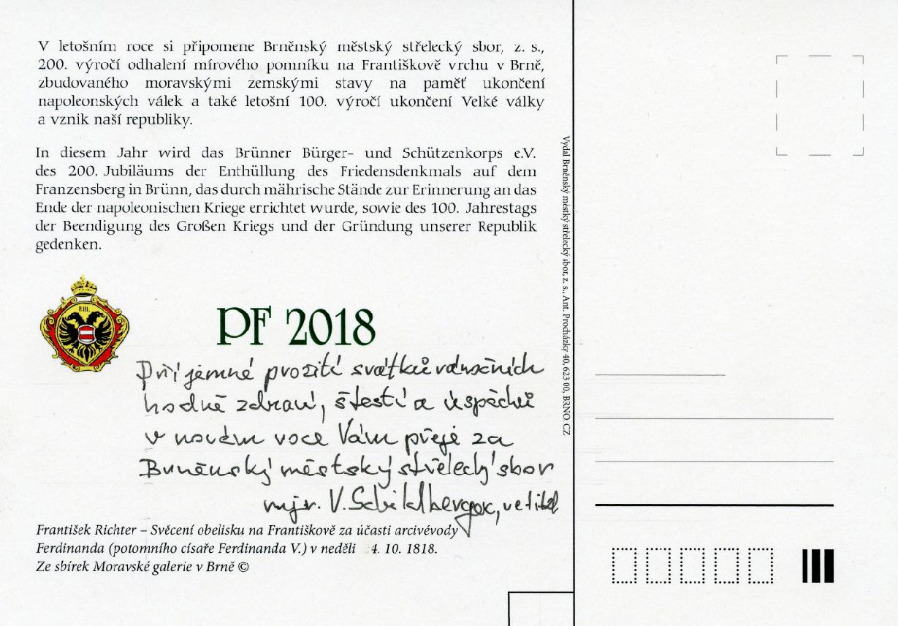 V letošním roce si připomene Brněnský městský střelecký sbor, z. s.,
200. výročí odhalení mírového pomníku na Františkově vrchu v Brně,
zbudovaného moravskými zemskými stavy na paměť ukončení
napoleonských válek a také letošní 100. výročí ukončení Velké války
a vznik naší republiky.
In diesem Jahr wird das Brünner Bürger- und Schützenkorps e.V.
des 200. Jubiläums der Enthüllung des Friedensdenkmals auf dem
Franzensberg in Brünn, das durch mährische Stände zur Erinnerung an das
Ende der napoleonischen Kriege errichtet wurde, sowie des 100. Jahrestags
der Beendigung des Großen Kriegs und der Gründung unserer Republik
gedenken.
PF 2018
Příjemné prožití svátků vánočních
hodně zdraví, štestí a úspěchů
v novém roce Vám přeje za
Brněnský městský střelecký sbor
mjr. V. Schildberger, velitel
František Richter – Svěcení obelisku na Františkově za účasti arcivévody
Ferdinanda (potomního císaře Ferdinanda V.) v neděli 4. 10. 1818.
Ze sbírek Moravské galerie v Brně ©
Vydal Brněnský městký střelecký sbor, z. s., Ant. Procházky 40, 623 00, BRNO CZ